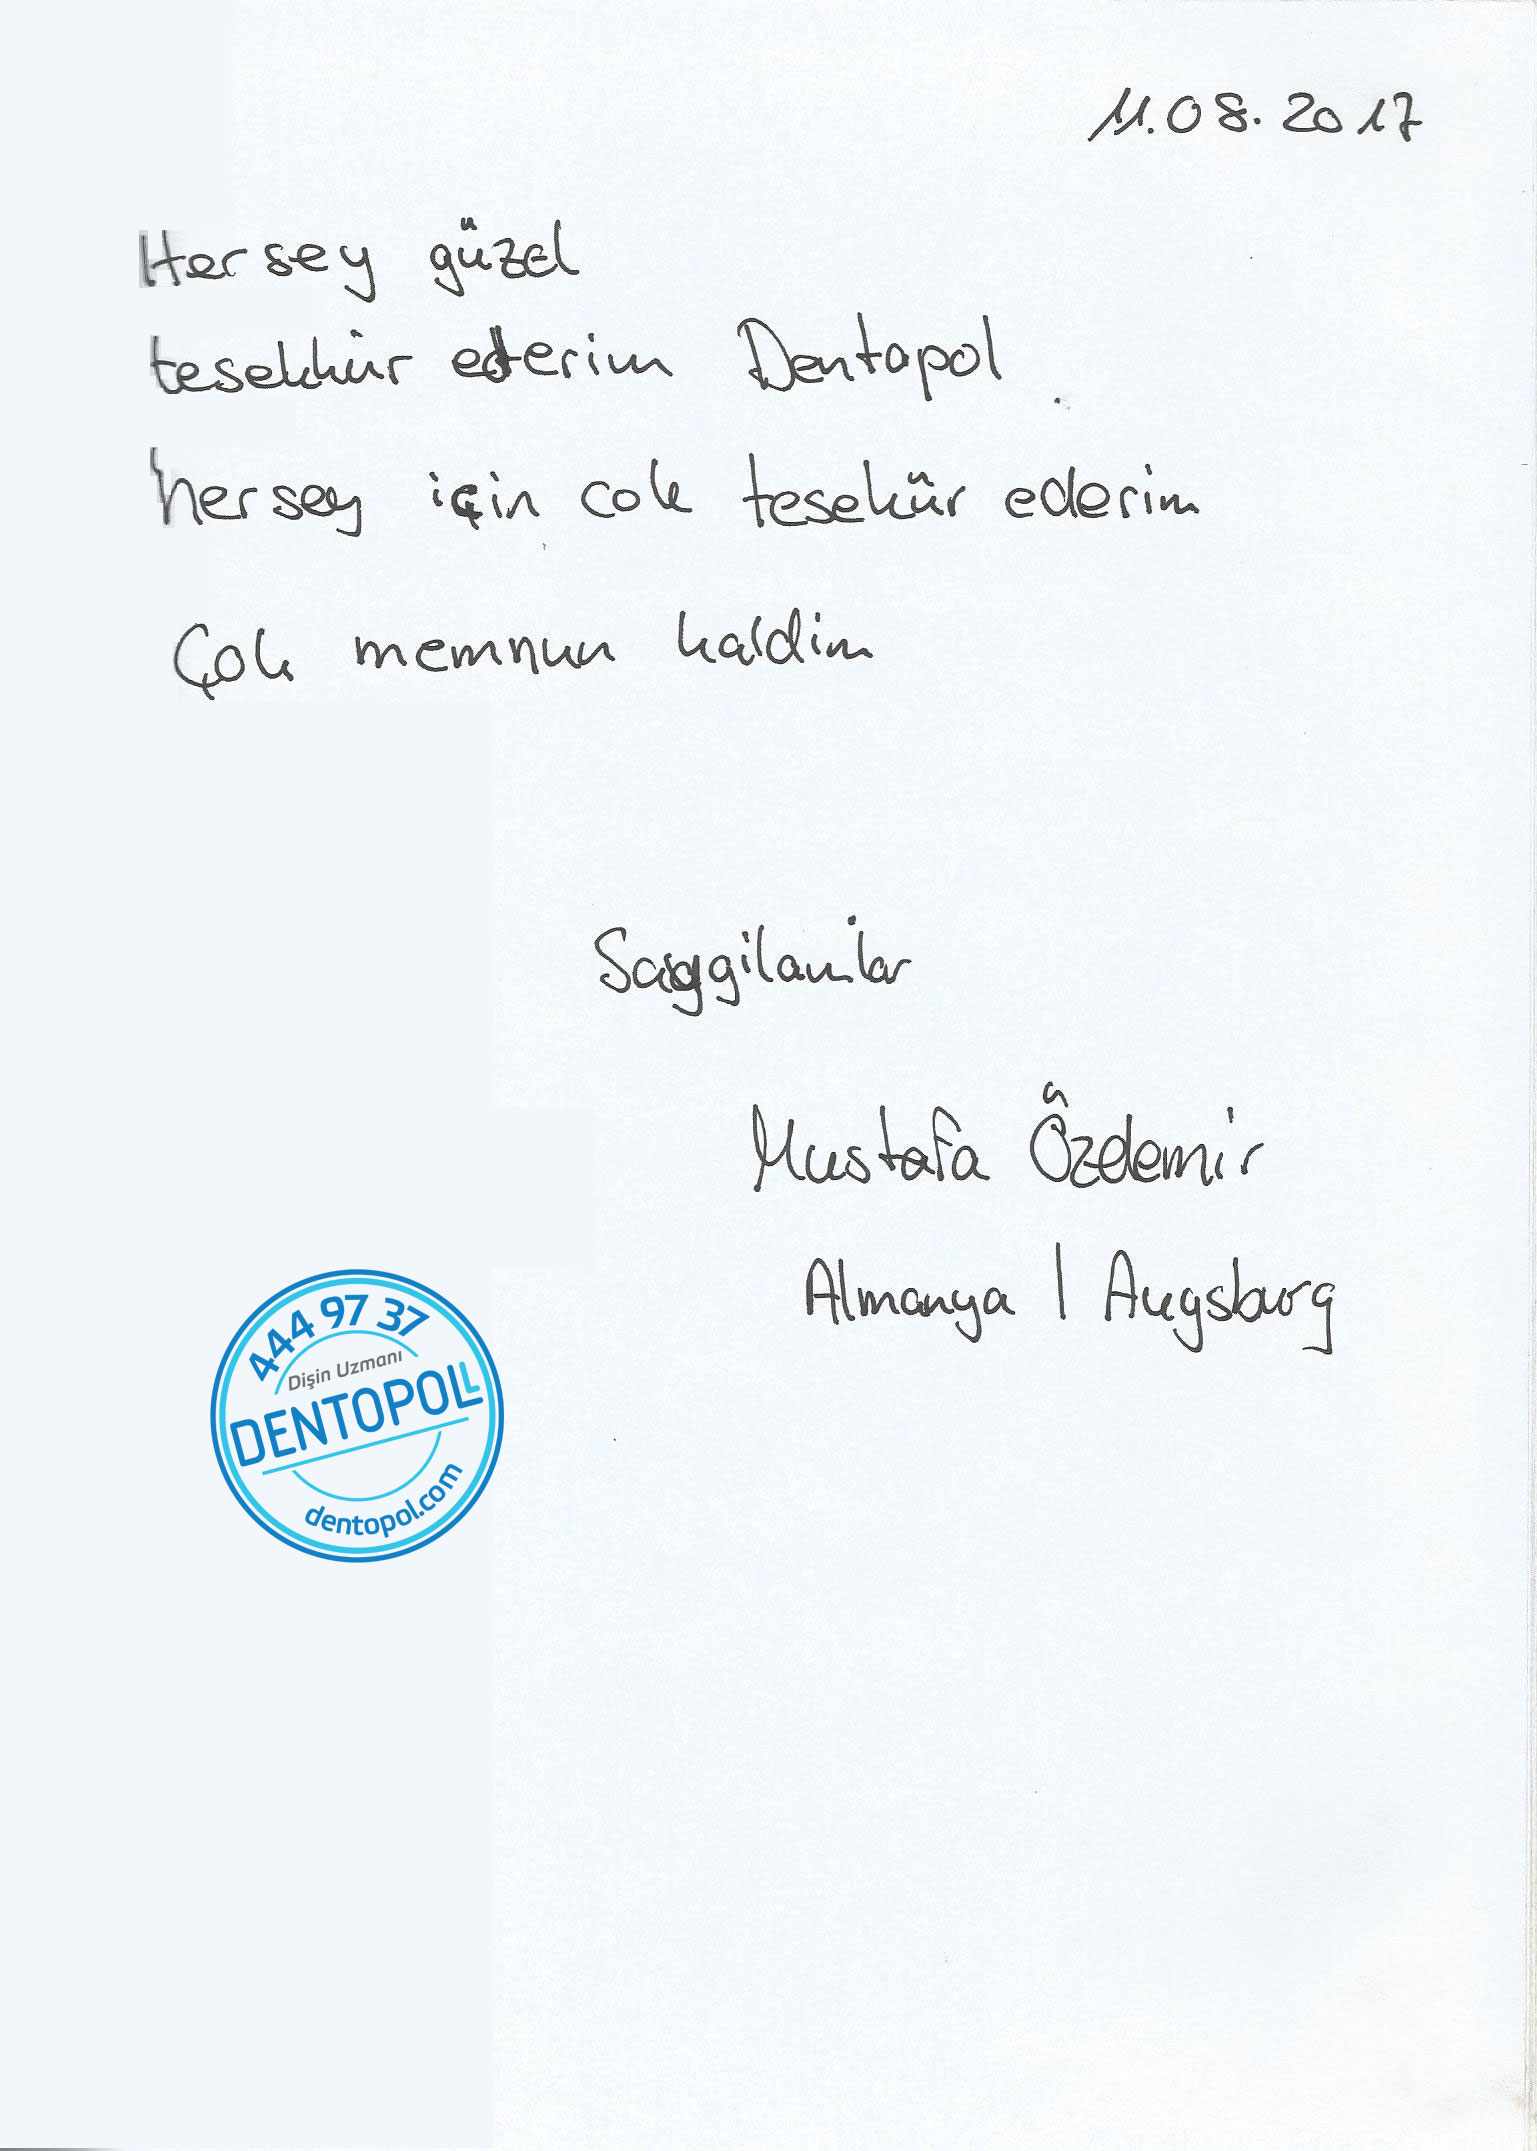 11.08.2017
Hersey güzel
tesekkür ederim Dentapol
hersey için cok tesekür ederim
Çok memnun kaldim
Mustafa Özdemir
Almanya / Augsburg
444 97 37
Dişin Uzmanı
DENTOPOL
dentopol.com